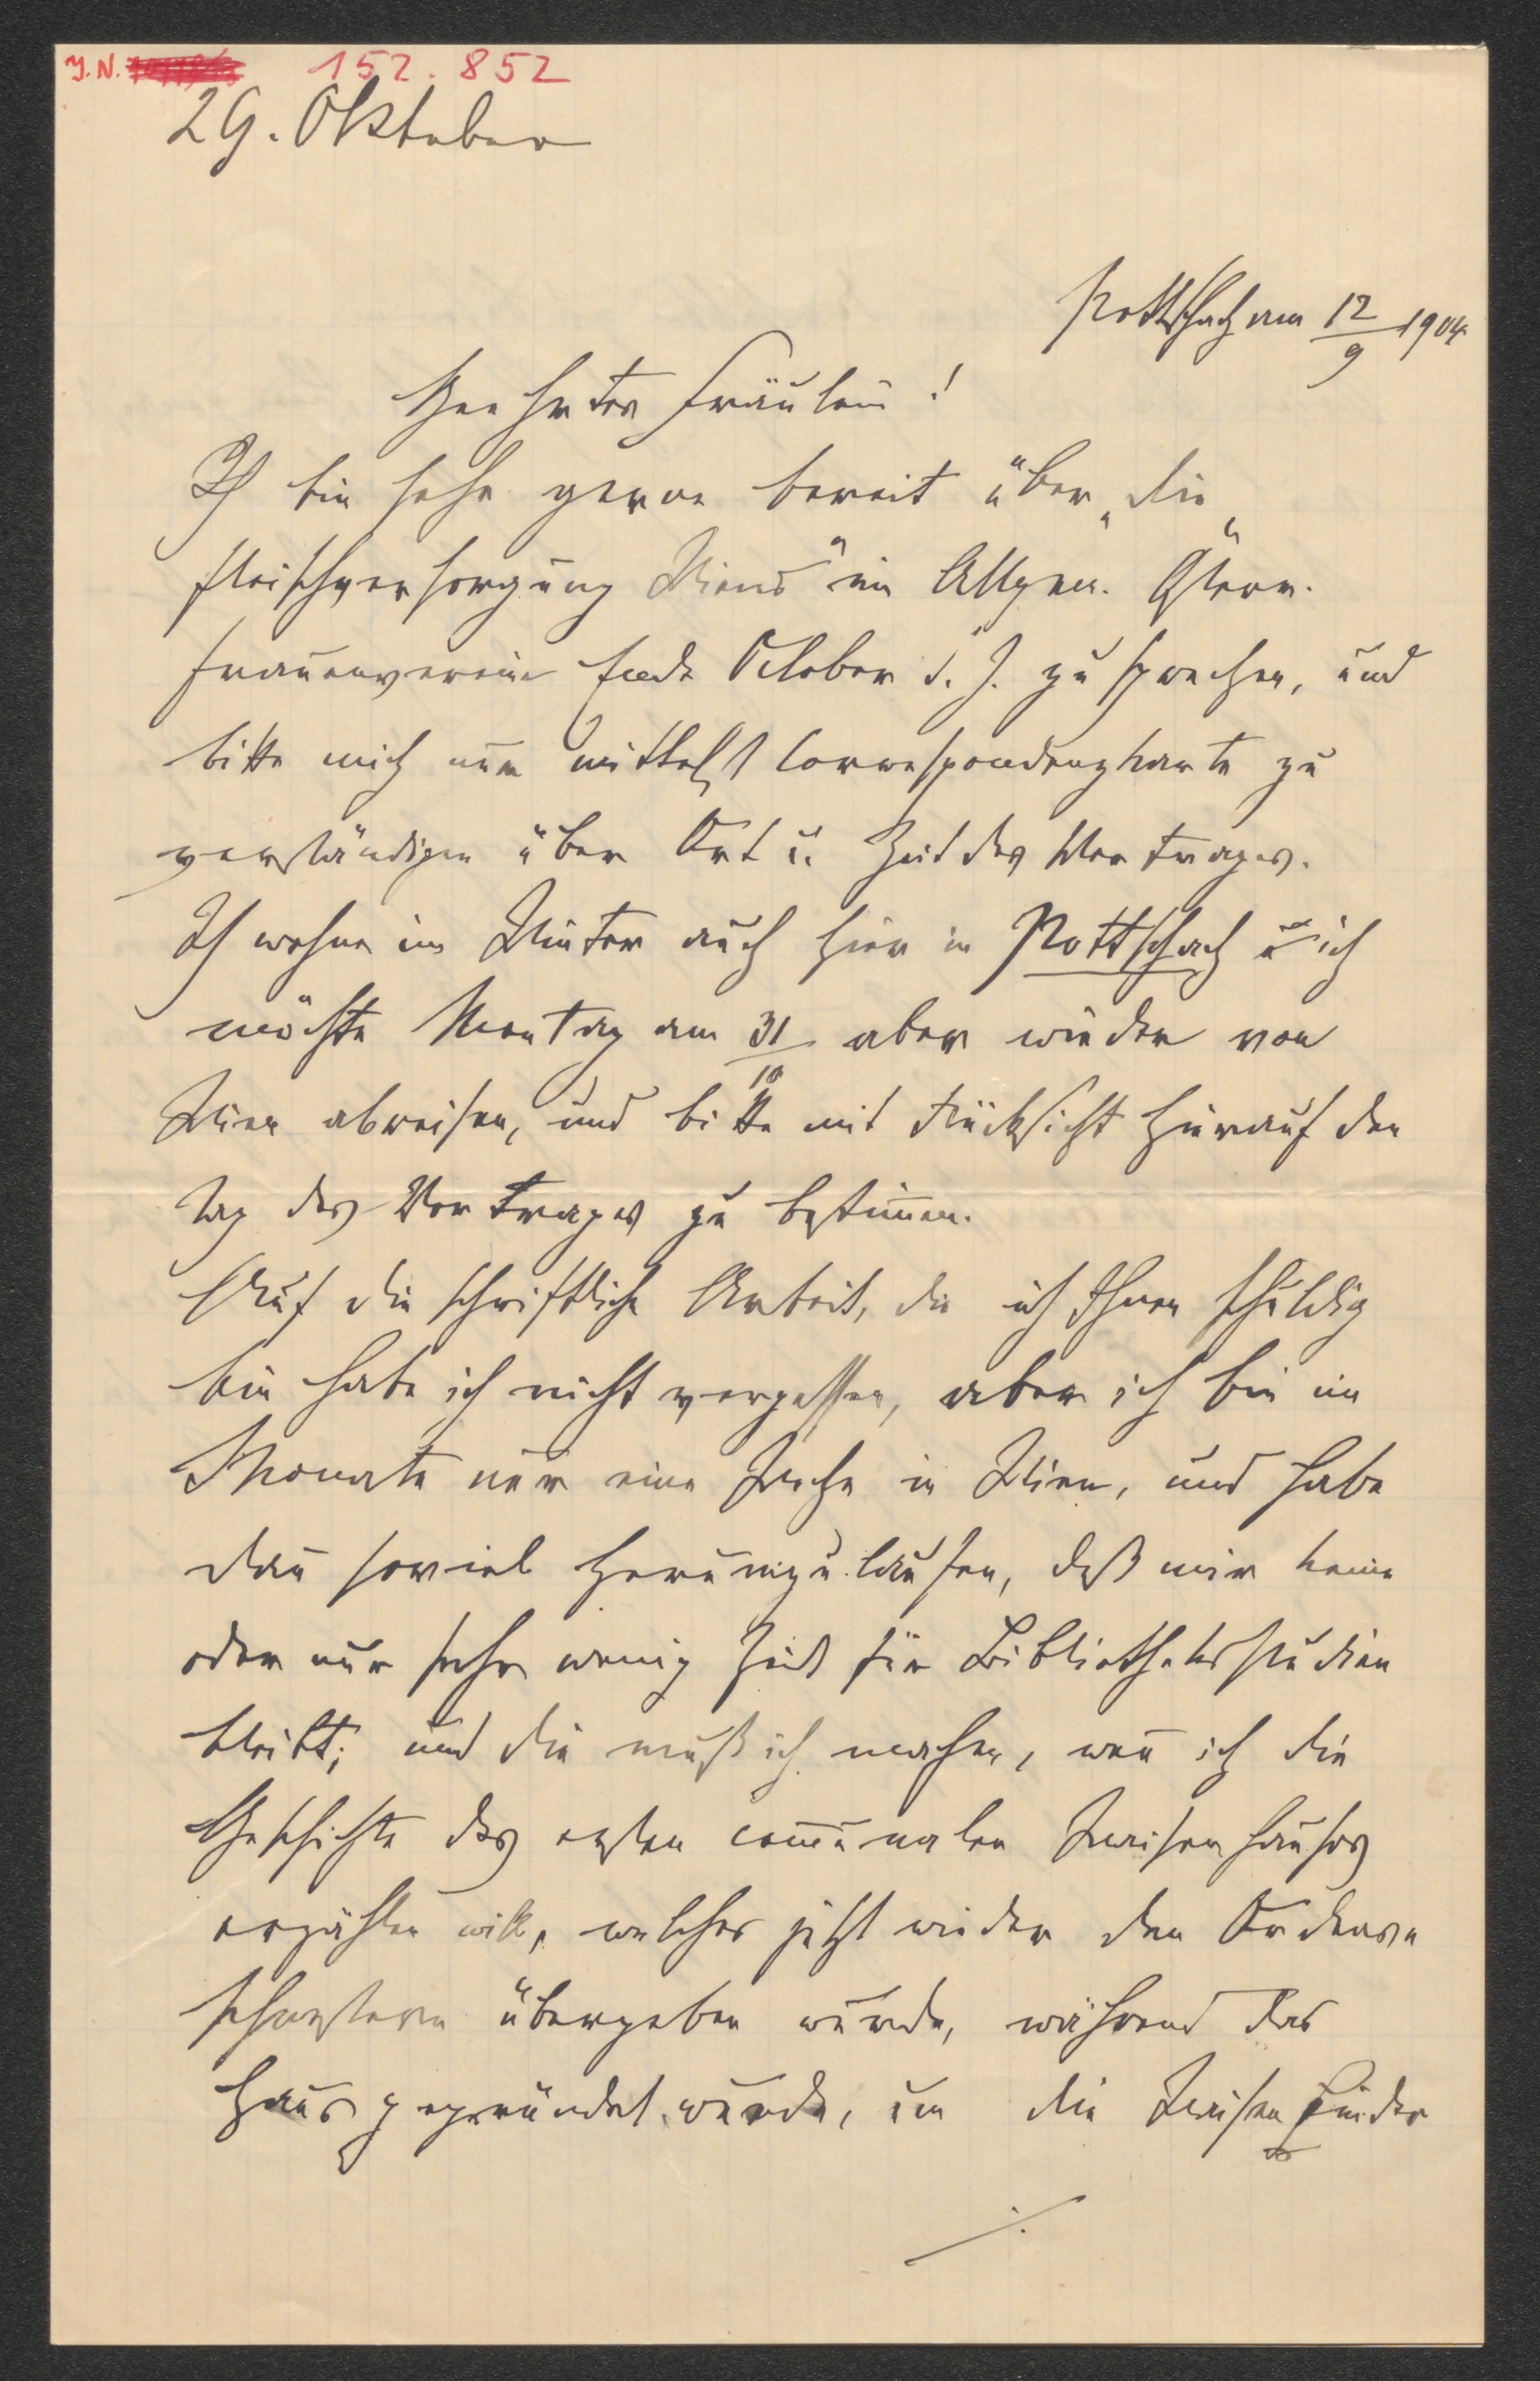 J.N. 152.852
29. Oktober
Pottschach am 12/9 1904
Geehrtes Fräulein!
Ich bin sehr gerne bereit über „die
Fleischversorgung Wiens" im Allgem. Österr.
Frauenvereine Ende October d. J. zu sprechen, und
bitte mich nun mittelst Correspondenzkarte zu
verständigen über Ort u. Zeit des Vortrages.
Ich wohne im Winter auch hier in Pottschach u ich
möchte Montag am 31/10 aber wieder von
Wien abreisen, und bitte mit Rücksicht hierauf den
Tag des Vortrages zu bestim̅en.
Auf die schriftliche Arbeit, die ich Ihnen schuldig
bin habe ich nicht vergessen, aber ich bin im
Monate nur eine Woche in Wien, und habe
dan̅ soviel herumzulaufen, daß mir keine
oder nur sehr wenig Zeit für Bibliotheksstudien
bleibt; und die muß ich machen, wen̅ ich die
Geschichte des ersten com̅unalen Waisenhauses
erzählen will, welches jetzt wieder den Ordens
schwestern übergeben wurde, während das
Haus gegründet wurde, um die Waisenkinder
./.